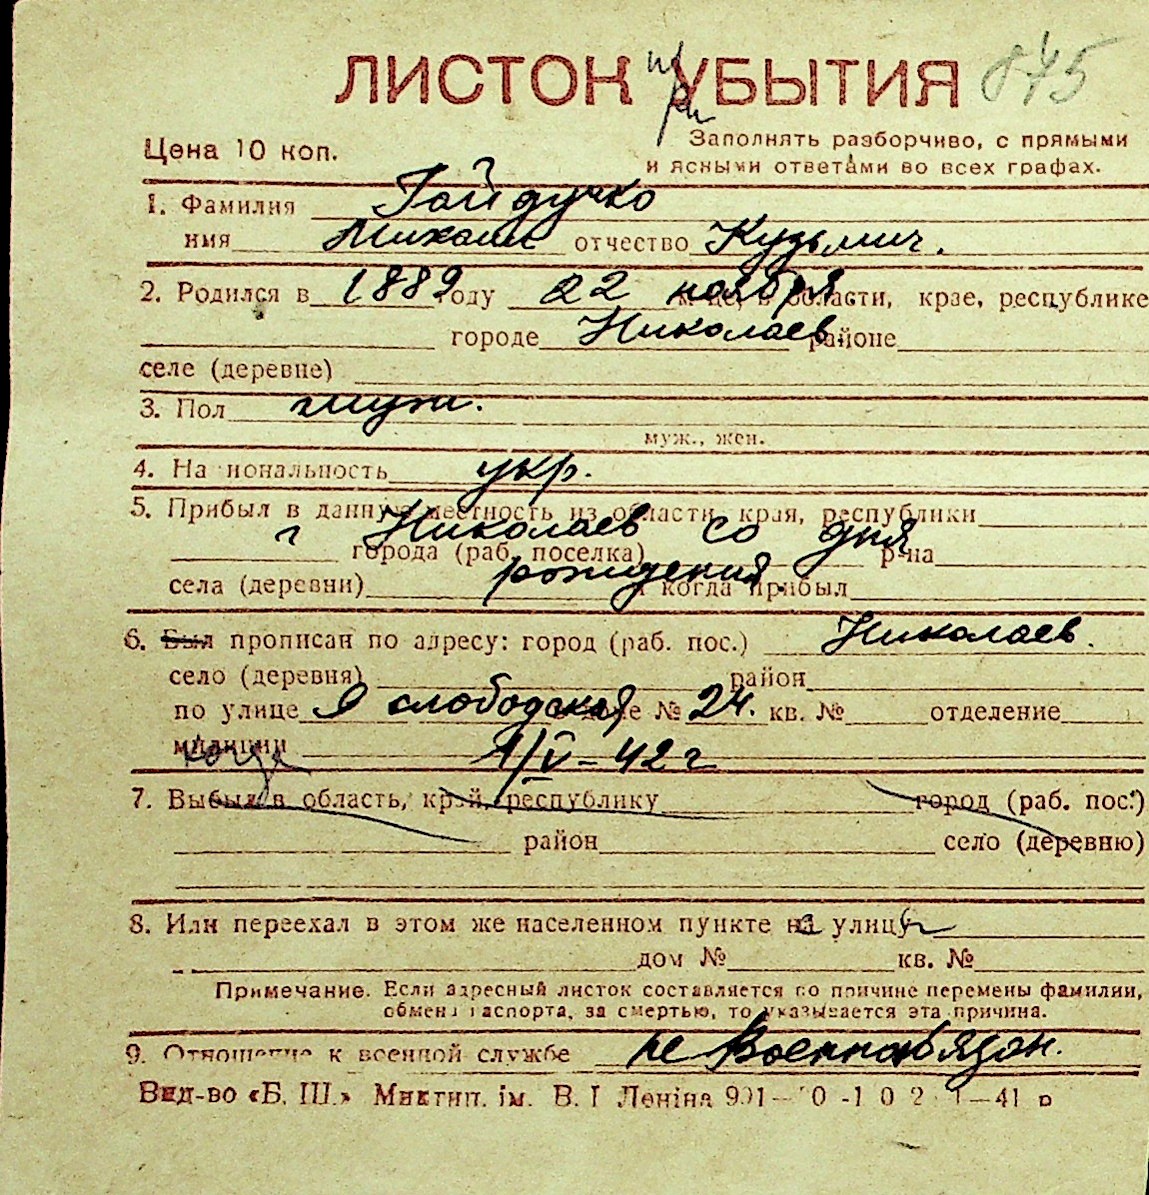 ЛИСТОК УБЫТИЯ при 875
Цена 10 коп.
Заполнять разборчиво, с прямыми
и ясными ответами во всех графах.
1. Фамилия Гайдучко
имя Михаил отчество Кузьмич.
2. Родился в 1889 году 22 ноября области, крае, республике
городе Николаев. районе
селе (деревне)
3. Пол муж.
муж., жен.
4. Национальность укр.
5. Прибыл в данную местность из области, края, республики
г Николаев со дня
города (раб. поселка) р-на
рождения
села (деревни) и когда прибыл
6. Был прописан по адресу: город (раб. пос.) Николаев.
село (деревня) район
по улице 9 слободская доме № 24. кв. № отделение
милиции когда 1/V-42 г
7. Выбыл в область, край, республику город (раб. пос.)
район село (деревню)
8. Или переехал в этом же населенном пункте на улицу
дом № кв. №
Примечание. Если адресный листок составляется по причине перемены фамилии,
обмена паспорта, за смертью, то указывается эта причина.
9. Отношение к военной службе не военнообязан.
Вид-во «Б. Ш.» Миктип. ім. В. І Леніна